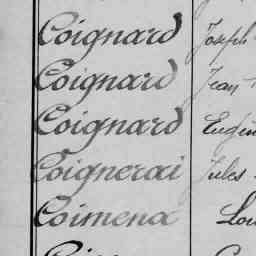 Coignard Joseph
Coignard Jean
Coignard Eugèn
Coignerai Jules
Coimena Lou